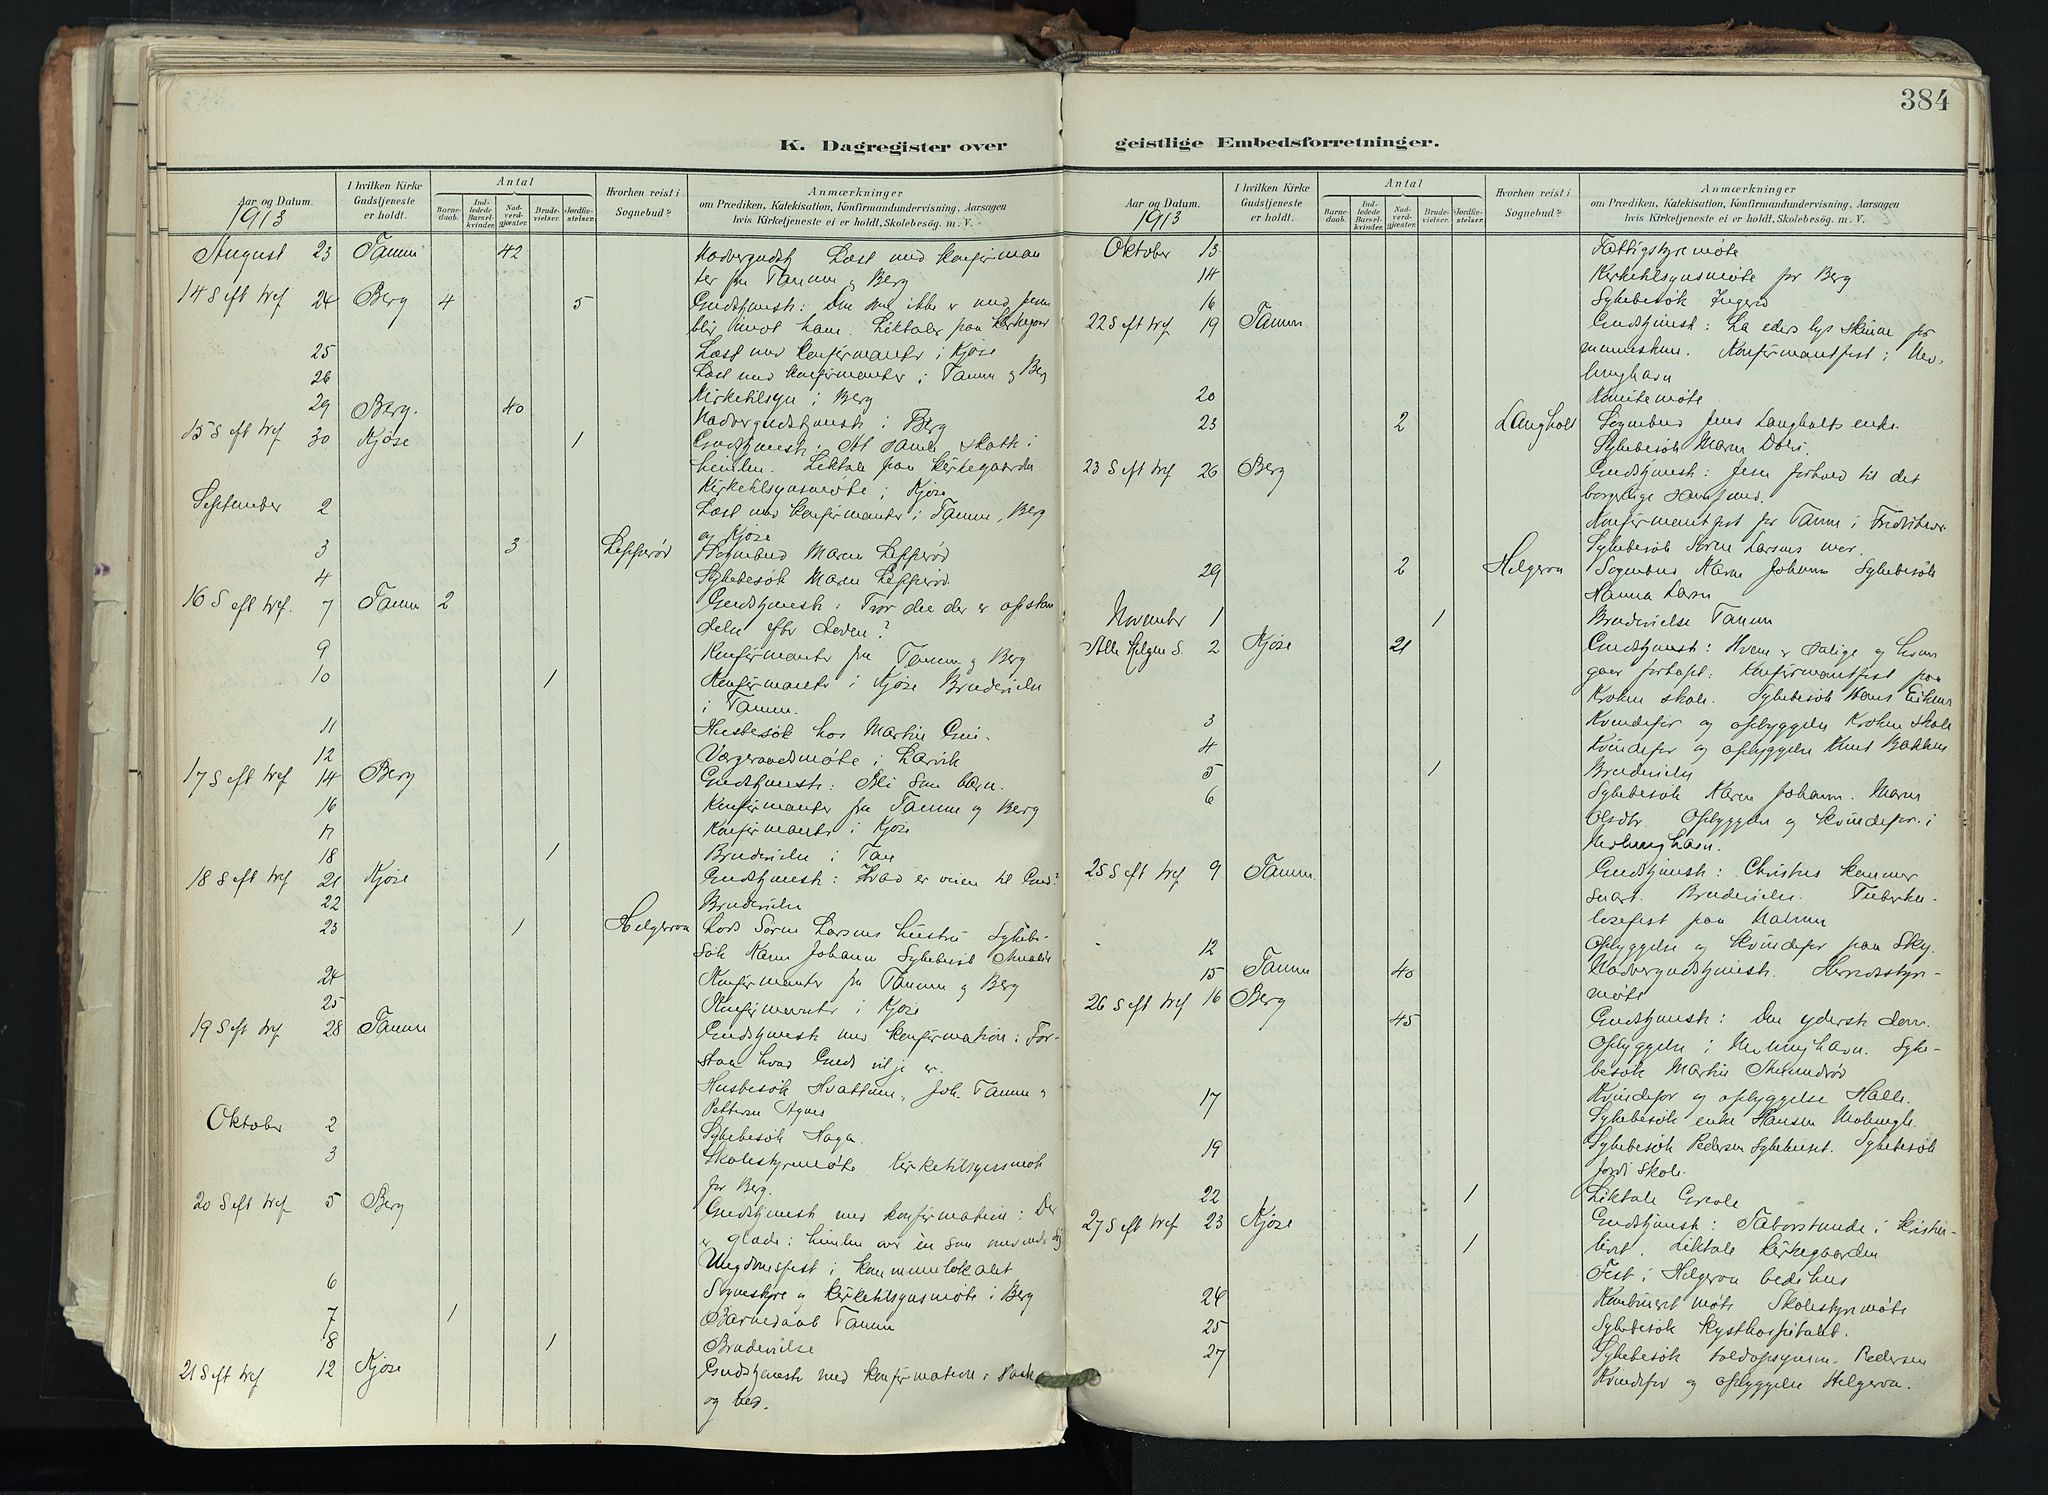 384
K. Dagregister over geistlige Embedsforretninger.
Aar og Datum. I hvilken Kirke Gudstjeneste er holdt. Antal Barnedaab. Indledede Barselkvinder. Nadverdgjæster. Brudevielser. Jordfæstelser. Hvorhen reist i Sognebud? Anmærkninger om Prædiken, Katekisation, Konfirmandundervisning, Aarsagen hvis Kirketjeneste ei er holdt, Skolebesøg. m. V.
1913
August 23 Tanum 42 Nadvergudstj Læst med konfirman
ter fra Tanum og Berg
14 S eft tref 24 Berg 4 5 Gudstjenest: Den som ikke er med
blir imot ham. Liktaler paa kirkegaar
25 Læst med konfirmanter i Kjøse
26 Læst med konfirmanter i Tanum og Berg
Kirketilsyn i Berg
29 Berg. 40 Nadvergudstjenest i Berg
15 S eft tref 30 Kjøse 1 Gudstjenest: At samle skatte i
himlen. Liktale paa kirkegaarden
Kirketilsynsmøte i Kjøse
September 2 Læst med konfirmanter i Tanum, Berg
og Kjøse
3 3 Lefferød Sognebud Maren Lefferød
4 Sykebesøk Maren Lefferød.
16 S eft tref. 7 Tanum 2 Gudstjenest: Tror du der er opstan
delse efter døden?
9 Konfirmanter fra Tanum og Berg
10 1 Konfirmanter i Kjøse Brudevielse
i Tanum.
11 Husbesøk hos Martin
12 Værgeraadsmøte i Larvik
17 S eft tref 14 Berg Gudstjenest: Bli som barn.
16 Konfirmanter fra Tanum og Berg
17 Konfirmanter i Kjøse
18 1 Brudevielse i Tan
18 S eft tref 21 Kjøse Gudstjenest: Hvad er veien til Gud?
22 Brudevielse
23 1 Helgeroa Lars Sørne Larsens hustru Sykebe-
søk Karen Johanne Sykebesøk
24 Konfirmanter fra Tanum og Berg
25 Konfirmanter i Kjøse
19 S eft tref 28 Tanum Gudstjenest med konfirmation: For-
staa hvad Guds vilje er.
Husbesøk Hvattum, Joh. Tanum,
Pettersen Agnes
Oktober 2 Sykebesøk Haga.
3 Skolestyremøte Kirketilsynsmøte
for Berg.
20 S eft tref 5 Berg Gudstjenest med konfirmation: Der
er glæde i himlen over én som omvender sig
Ungdomsfest i kommunelokalet
6 Sognestyre og kirketilsynsmøte i Berg
7 1 Barnedaab Tanum
8 1 Brudevielse
21 S eft tref 12 Kjøse Gudstjeneste med konfirmation:
og bed.
Aar og Datum. I hvilken Kirke Gudstjeneste er holdt. Antal Barnedaab. Indledede Barselkvinder. Nadverdgjæster. Brudevielser. Jordfæstelser. Hvorhen reist i Sognebud? Anmærkninger om Prædiken, Katekisation, Konfirmandundervisning, Aarsagen hvis Kirketjeneste ei er holdt, Skolebesøg. m. V.
1913
Oktober 13 Fattigstyremøte
14 Kirketilsynsmøte for Berg
16 Sykebesøk Ingerid
22 S eft tref 19 Tanum Gudstjenest: La eders lys skinne for
menneskene. Konfirmantfest i Nev-
lunghavn
20 Komitemøte
23 2 Langholt Sognebud Jens Langholts enke.
Sykebesøk Maren
23 S eft tref 26 Berg Gudstjenest: Jesu forhold til det
borgerlige samfund.
Konfirmantfest for Tanum i
Sykebesøk Sørne Larsens
29 2 Helgeroa Sognebud Karen Johanne Sykebesøk
Hanna Larsen
November 1 1 Brudevielse Tanum
Alle Helgens S. 2 Kjøse 21 Gudstjenest: Hvem er salige og hvem
gaar fortapt. Konfirmantfest paa
Krohen skole. Sykebesøk Hans
3 Kvindefor og opbyggelse Krohen skole
4 Kvindefor og opbyggelse Knut Bakken
5 1 Brudevielse
6 Sykebesøk Karen Johanne. Maren
Opbyggelse og kvindefor. i
Nevlunghavn.
25 S eft tref 9 Tanum. Gudstjenest: Christus kommer
snart. Brudevielse. Tuberku-
losefest paa
12 Opbyggelse og kvindefor paa Sky.
15 Tanum 40 Nadvergudstjenest. Herredsstyre-
møte
26 S eft tref 16 Berg 45 Gudstjenest: Den yderste dom.
Opbyggelse i Nevlunghavn. Syke-
besøk Martin
17 Kvindefor og opbyggelse Halle.
Sykebesøk enke Hansen
19 Sykebesøk Pedersen Sykehuset. Sykebesøk
Jordi skole.
22 1 Liktale
27 S eft tref 23 Kjøse 1 Gudstjenest: Taborstunde i kriste-
livet. Liktale kirkegaarden
Fest i Helgeroa bedehus
24 Kombinert møte Skolestyremøte
25 Sykebesøk kysthospitalet.
27 Sykebesøk toldopsynsm. Pedersen
Kvindefor og opbyggelse Helgeroa.